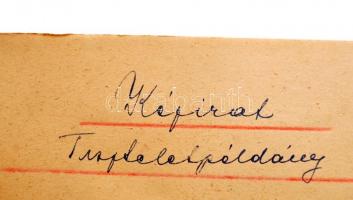 Kézirat
Tiszteletpéldány